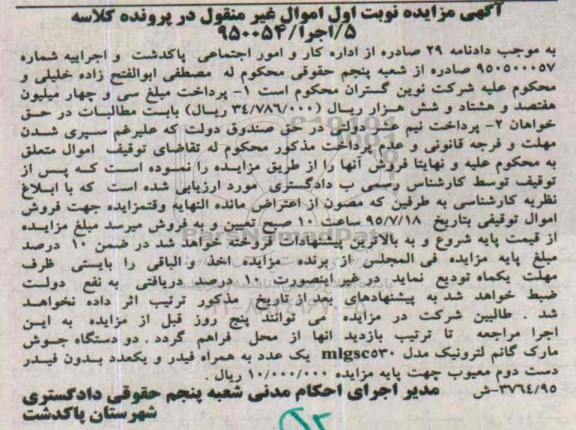 آگهی مزایده نوبت اول اموال غیر منقول در پرونده کلاسه
۵/اجرا/۹۵۰۰۵۴
به موجب دادنامه ۲۹ صادره از اداره کار و امور اجتماعی پاکدشت و اجراییه شماره
۹۵۰۵۰۰۰۵۷ صادره از شعبه پنجم حقوقی محکوم له مصطفی ابوالفتح زاده خلیلی و
محکوم علیه شرکت نوین گستران محکوم است ۱- پرداخت مبلغ سی و چهار میلیون
هفتصد و هشتاد و شش هزار ریال (۳۴/۷۸۶/۰۰۰ ریال) بابت مطالبات در حق
خواهان ۲- پرداخت نیم عشر دولتی در حق صندوق دولت که علیرغم سپری شدن
مهلت و فرجه قانونی و عدم پرداخت مذکور محکوم له تقاضای توقیف اموال متعلق
به محکوم علیه و نهایتا فروش آنها را از طریق مزایده را نموده است که پس از
توقیف توسط کارشناس رسمی ب دادگستری مورد ارزیابی شده است که با ابلاغ
نظریه کارشناسی به طرفین که مصون از اعتراض مانده النهایه وقتمزایده جهت فروش
اموال توقیفی بتاریخ ۹۵/۷/۱۸ ساعت ۱۰ صبح تعیین و به فروش میرسد مبلغ مزایده
از قیمت پایه شروع و به بالاترین پیشنهادات فروخته خواهد شد در ضمن ۱۰ درصد
مبلغ پایه مزایده فی المجلس از برنده مزایده اخذ و الباقی را بایستی ظرف
مهلت یکماه تودیع نماید در غیر اینصورت ۱۰ درصد دریافتی به نفع دولت
ضبط خواهد شد به پیشنهادهای بعد از تاریخ مذکور ترتیب اثر داده نخواهد
شد . طالبین شرکت در مزایده می توانند پنج روز قبل از مزایده به این
اجرا مراجعه تا ترتیب بازدید آنها از محل فراهم گردد . دو دستگاه جوش
مارک گانم لترونیک مدل mlgsc۵۳۰ یک عدد به همراه فیدر و یکعدد بدون فیدر
دست دوم معیوب جهت پایه مزایده ۱۰/۰۰۰/۰۰۰ ریال .
۳۷۶۴/۹۵-ش مدیر اجرای احکام مدنی شعبه پنجم حقوقی دادگستری
شهرستان پاکدشت